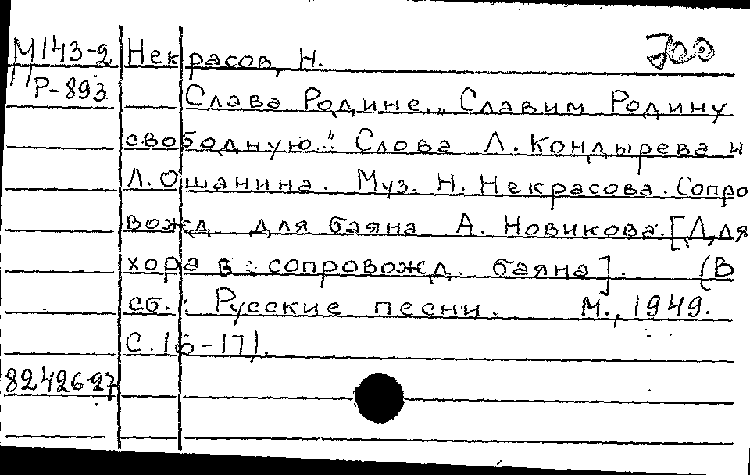 М143-2 Некрасов, Н. 700
Р-893
Слава Родине. „Славим Родину
свободную." Слова Л. Кондырева и
Л. Ошанина. Муз. Н. Некрасова. Сопро
вожд. для баяна А. Новикова. [Для
хора в сопровожд. баяна]. (В
сб.: Русские песни. М., 1949.
С. 16-17).
82426-27